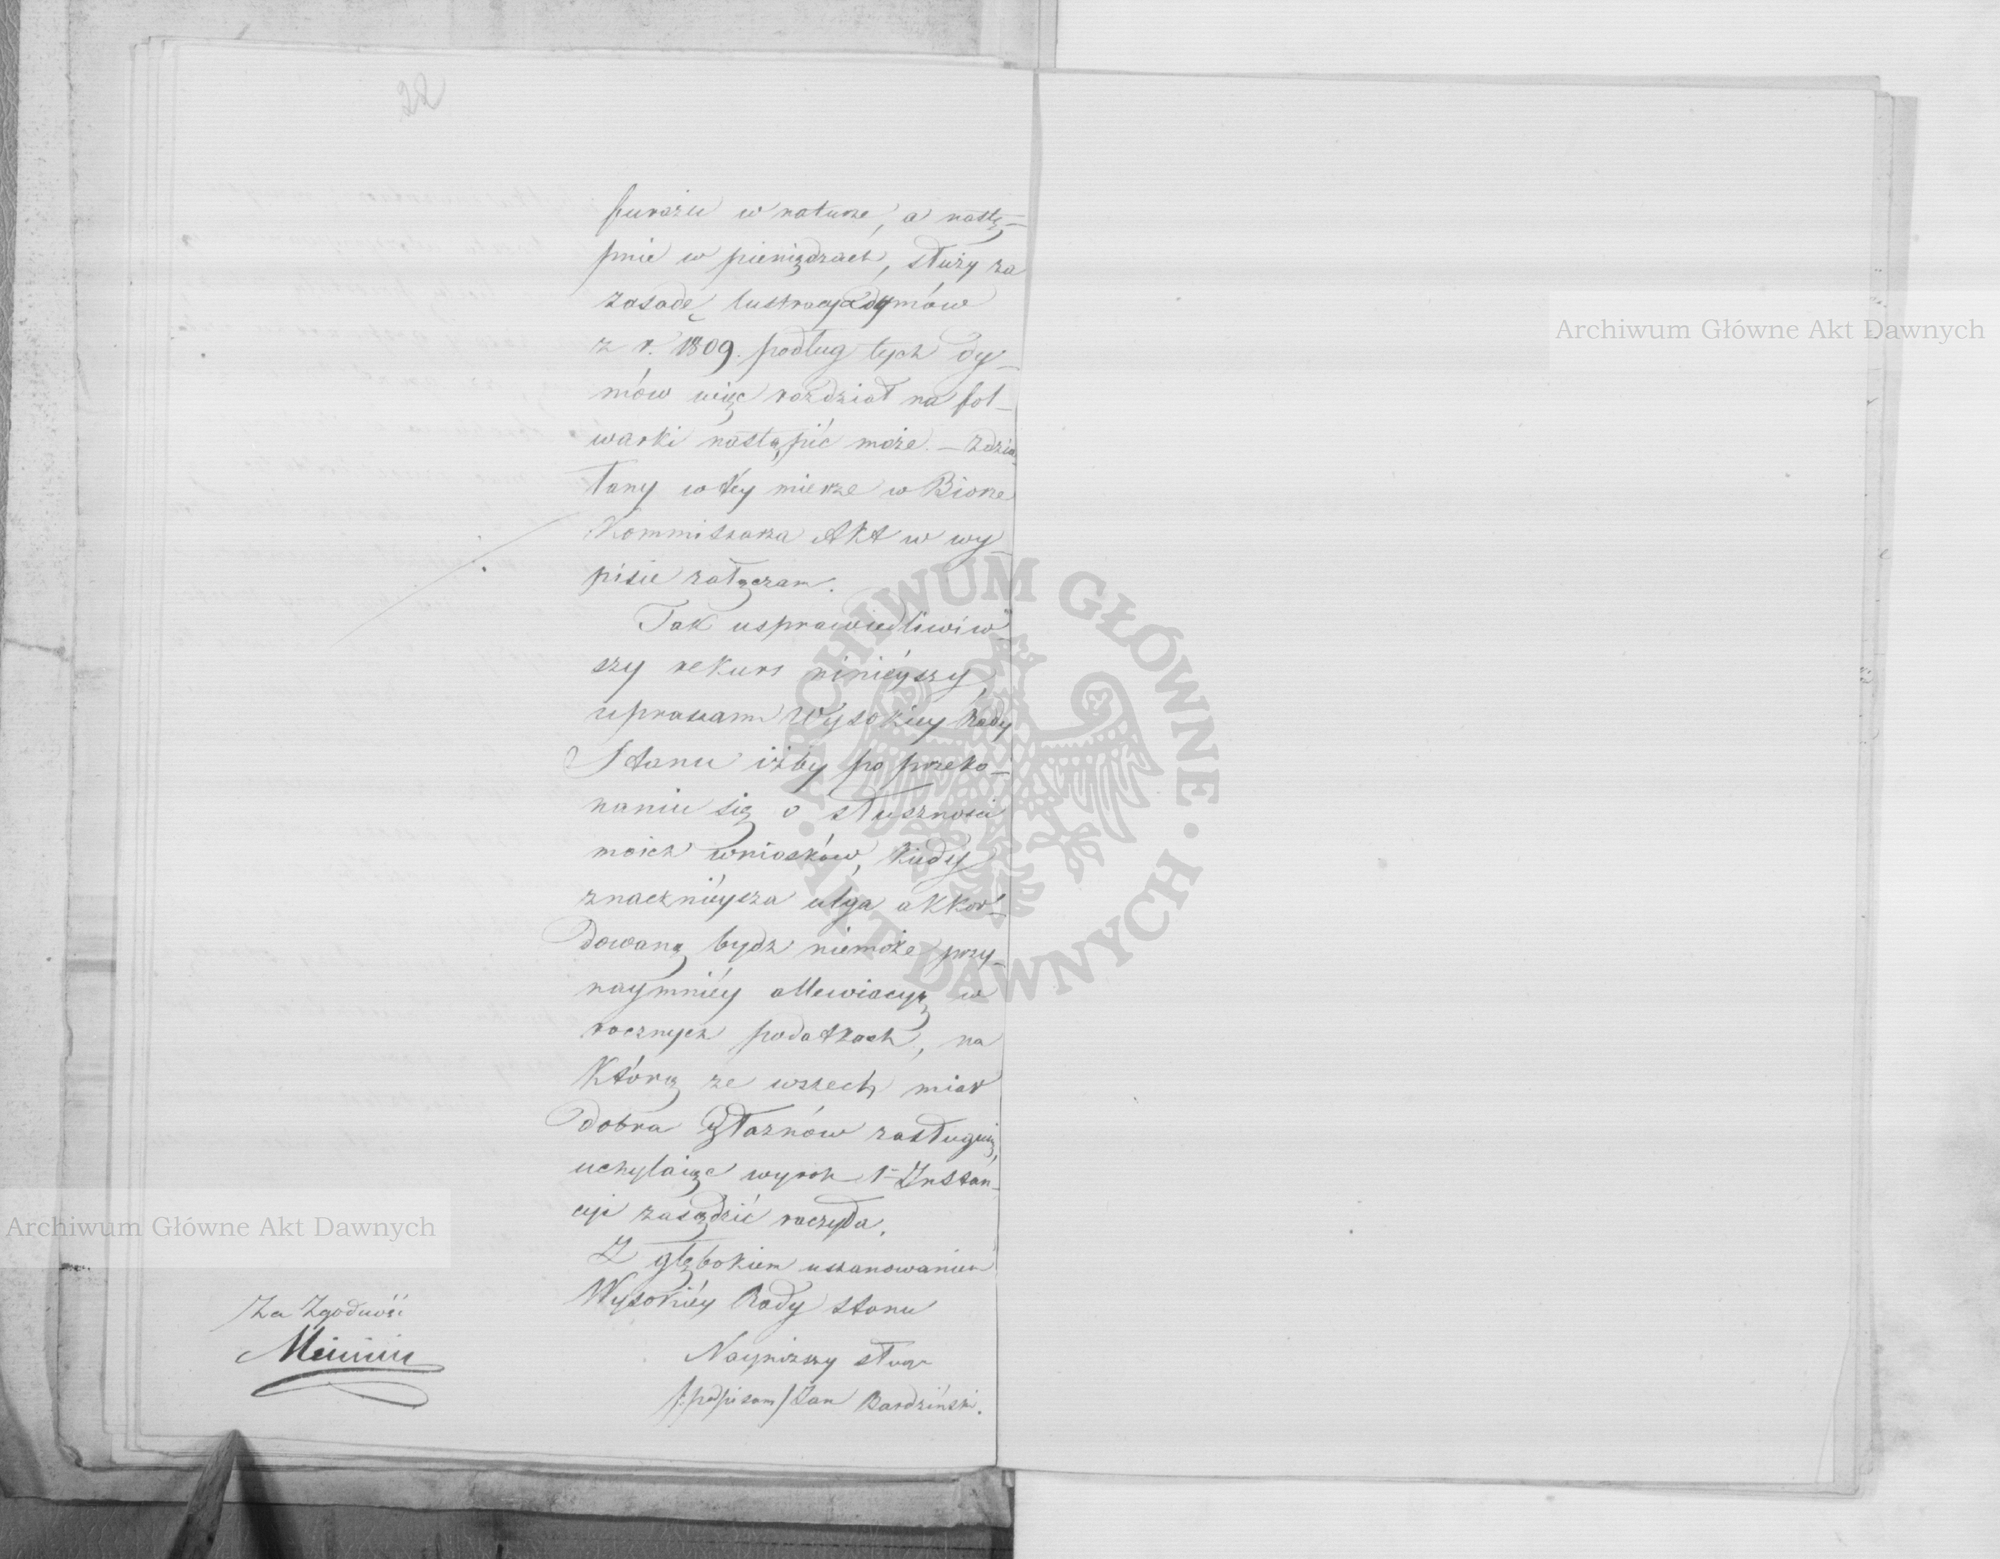 22
furażu w naturze, a nastę-
pnie w pieniądzach, służy za
zasadę lustracya dymów
z r. 1809. podług tych dy-
mów więc rozdział na fol-
warki nastąpić może. – Zdzia-
łany w téy mierze w Biorze
Kommissarza Akt w wy-
pisie załączam.
Tak usprawiedliwiw-
szy rekurs ninieyszy,
upraszam Wysokiey Rady
Stanu iżby po przeko-
naniu się o słuszności
moich wniosków, kiedy
znacznieysza ulga akkor-
dowaną bydz niemoże przy-
naymniéy allewiacyą w
rocznych podatkach, na
którą ze wszech miar
dobra zasługuią,
uchylaiąc wyrok 1ª Instan-
cyi zasądzić raczyła.
Z głębokiem uszanowaniem
Wysokiéy Rady Stanu
Nayniższy sługa
/:podpisano/ Jan Bardziński.
Za Zgodność
ARCHIWUM GŁÓWNE · AKT DAWNYCH ·
Archiwum Główne Akt Dawnych
Archiwum Główne Akt Dawnych